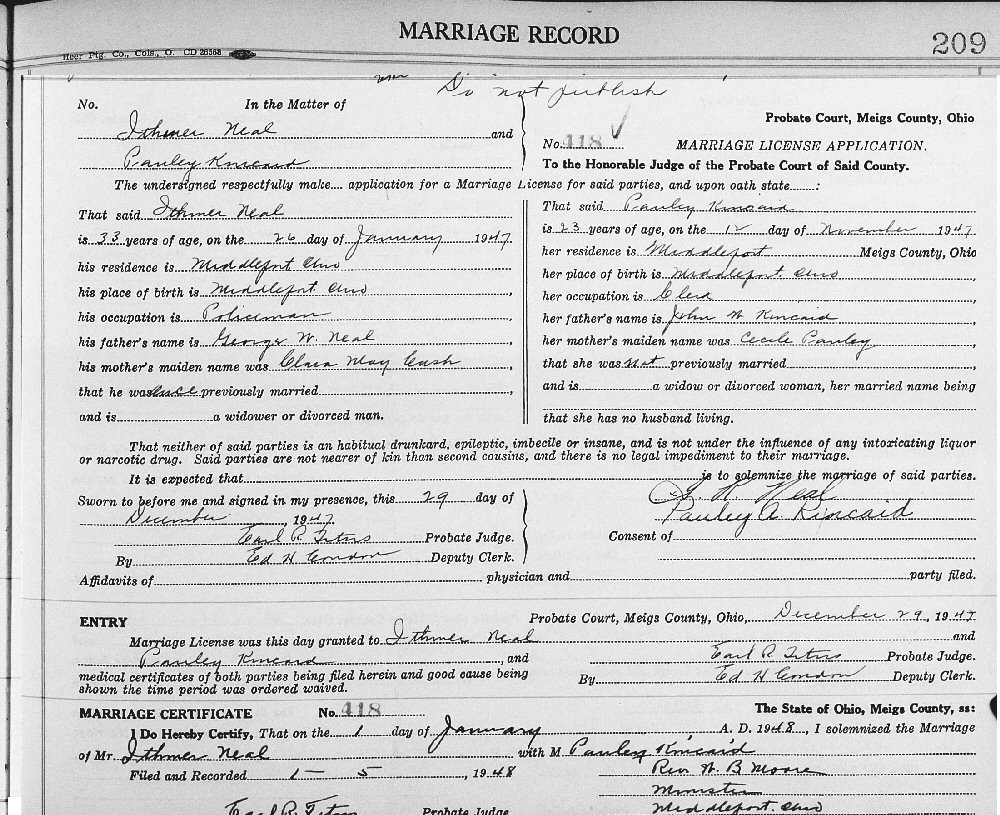 MARRIAGE RECORD
209
Heer Ptg. Co., Cols., O. CD 26388
Do not publish
No. In the Matter of
Ithmer Neal and
Pauley Kincaid
Probate Court, Meigs County, Ohio
No. 418 MARRIAGE LICENSE APPLICATION.
To the Honorable Judge of the Probate Court of Said County.
The undersigned respectfully make.... application for a Marriage License for said parties, and upon oath state........:
That said Ithmer Neal
is 33 years of age, on the 26 day of January 1947,
his residence is Middleport Ohio,
his place of birth is Middleport Ohio,
his occupation is Policeman,
his father's name is George W. Neal,
his mother's maiden name was Clara May Cash,
that he was once previously married,
and is a widower or divorced man.
That said Pauley Kincaid
is 23 years of age, on the 12 day of November 1947,
her residence is Middleport Meigs County, Ohio
her place of birth is Middleport Ohio,
her occupation is Clerk,
her father's name is John W Kincaid,
her mother's maiden name was Cecile Pauley,
that she was not previously married,
and is a widow or divorced woman, her married name being
that she has no husband living.
That neither of said parties is an habitual drunkard, epileptic, imbecile or insane, and is not under the influence of any intoxicating liquor
or narcotic drug. Said parties are not nearer of kin than second cousins, and there is no legal impediment to their marriage.
It is expected that is to solemnize the marriage of said parties.
Sworn to before me and signed in my presence, this 29 day of
December, 1947.
Earl R. Probate Judge.
By Ed H Condon Deputy Clerk.
Neal
Pauley A. Kincaid
Consent of
Affidavits of physician and party filed.
ENTRY Probate Court, Meigs County, Ohio, December 29, 1947
Marriage License was this day granted to Ithmer Neal and
Pauley Kincaid, and
medical certificates of both parties being filed herein and good cause being
shown the time period was ordered waived.
Earl R. Probate Judge.
By Ed H Condon Deputy Clerk.
MARRIAGE CERTIFICATE No. 418 The State of Ohio, Meigs County, ss:
I Do Hereby Certify, That on the 1 day of January A. D. 1948, I solemnized the Marriage
of Mr. Ithmer Neal with M Pauley Kincaid
Filed and Recorded 1-5, 1948
Rev. W. B Moore
Minister
Middleport. Ohio
Earl R. Probate Judge